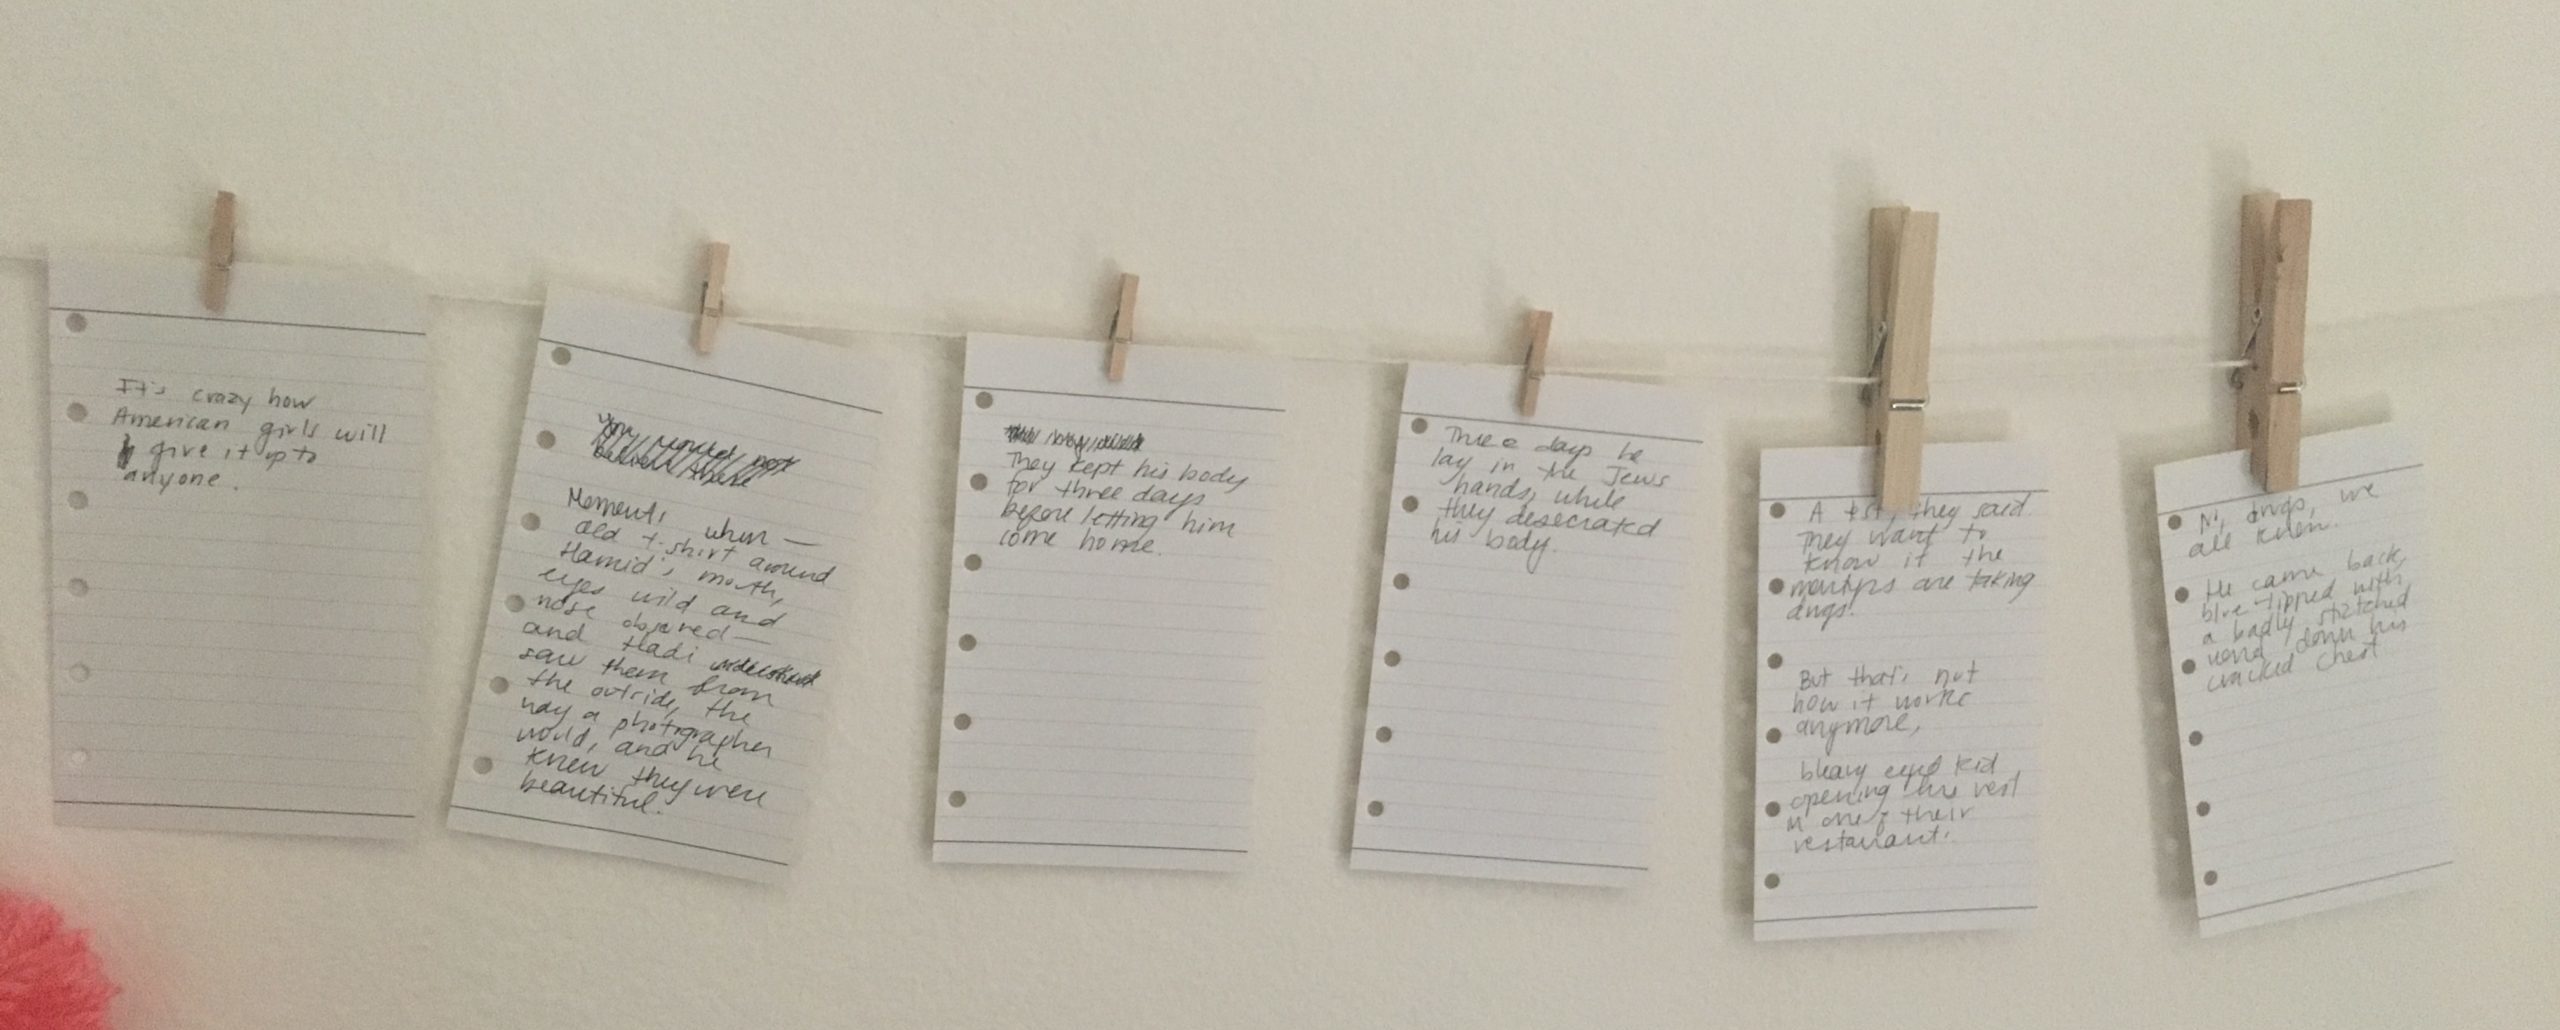 It's crazy how
American girls will
give it up to
anyone.
You would not
believe there
Moments when —
old t-shirt around
Hamid's mouth,
eyes wild and
nose obscured —
and Hadi understood
saw them from
the outside, the
way a photographer
would, and he
knew they were
beautiful.
They kept his body
for three days
before letting him
come home.
Three days he
lay in the Jews
hands, while
they desecrated
his body.
A test, they said.
They want to
know if the
martyrs are taking
drugs.
But that's not
how it works
anymore,
bleary eyed kid
opening his vest
in one of their
restaurants.
No, drugs, we
all knew.
He came back,
blue-tipped with
a badly stitched
wound down his
cracked chest